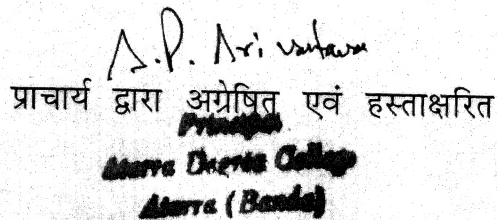 A.P. Srivastava
प्राचार्य द्वारा अग्रेषित एवं हस्ताक्षरित
Principal
Atarra Degree College
Atarra (Banda)